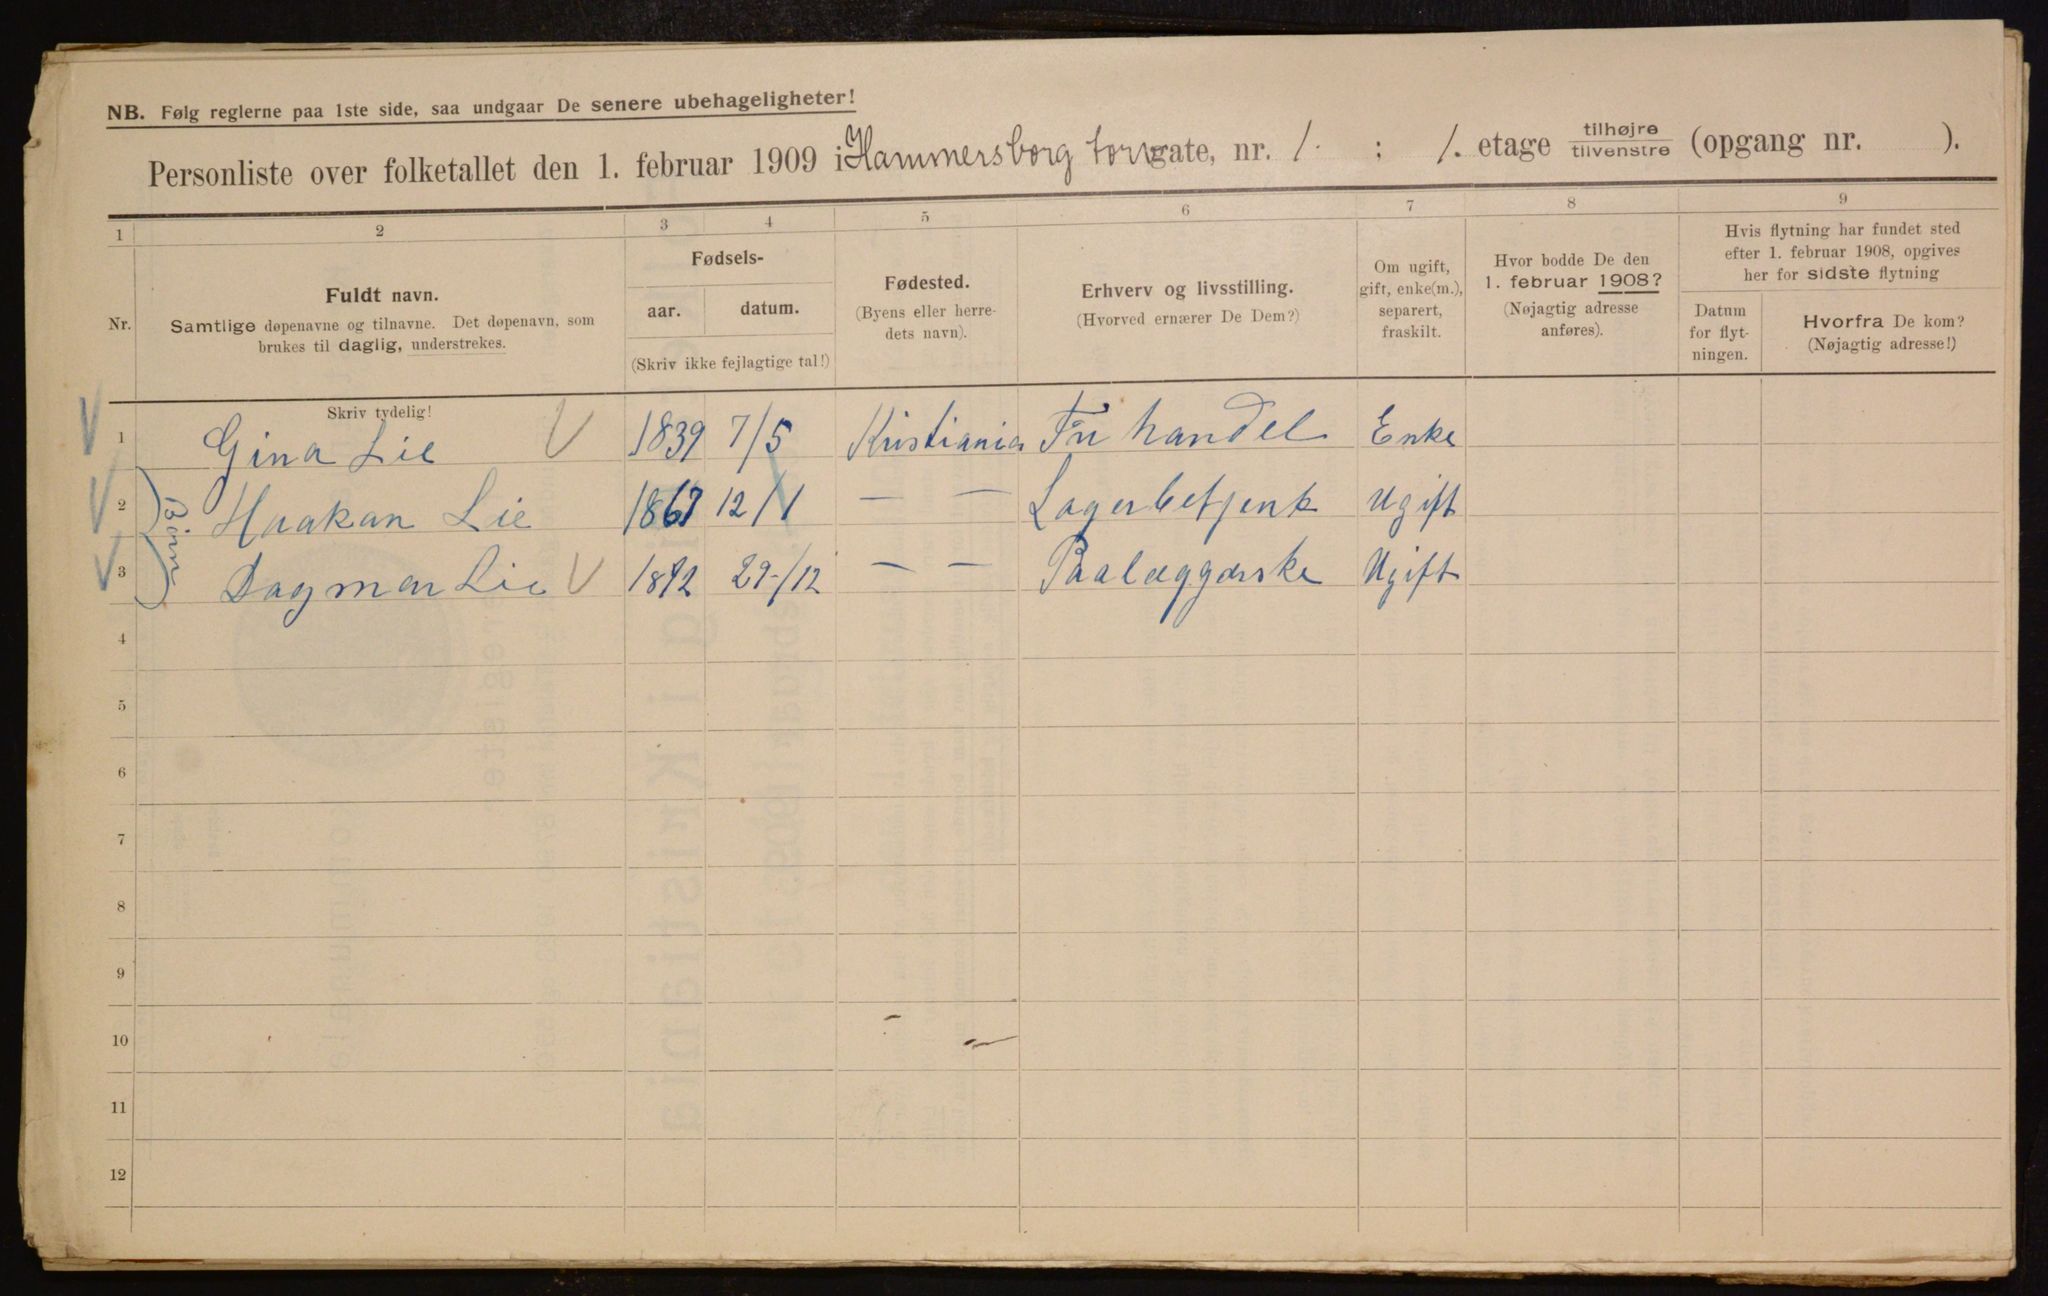 NB. Følg reglerne paa 1ste side, saa undgaar De senere ubehageligheter!
Personliste over folketallet den 1. februar 1909 i Hammersborg torvgate, nr. 1. ; 1. etage tilhøjre tilvenstre (opgang nr. ).
1 2 3 4 5 6 7 8 9
Nr.
Fuldt navn.
Samtlige døpenavne og tilnavne. Det døpenavn, som
brukes til daglig, understrekes.
Skriv tydelig!
Fødsels-
aar. datum.
(Skriv ikke fejlagtige tal!)
Fødested.
(Byens eller herre-
dets navn).
Erhverv og livsstilling.
(Hvorved ernærer De Dem?)
Om ugift,
gift, enke(m.),
separert,
fraskilt.
Hvor bodde De den
1. februar 1908?
(Nøjagtig adresse
anføres).
Hvis flytning har fundet sted
efter 1. februar 1908, opgives
her for sidste flytning
Datum
for flyt-
ningen.
Hvorfra De kom?
(Nøjagtig adresse!)
1 Gina Lie V 1839 7/5 Kristiania Fri handel Enke
2 Haakan Lie 1867 12/1 — — Lagerbetjent Ugift
3 Dagmar Lie V 1872 29-/12 — — Paalæggerske Ugift
Børn
4
5
6
7
8
9
10
11
12